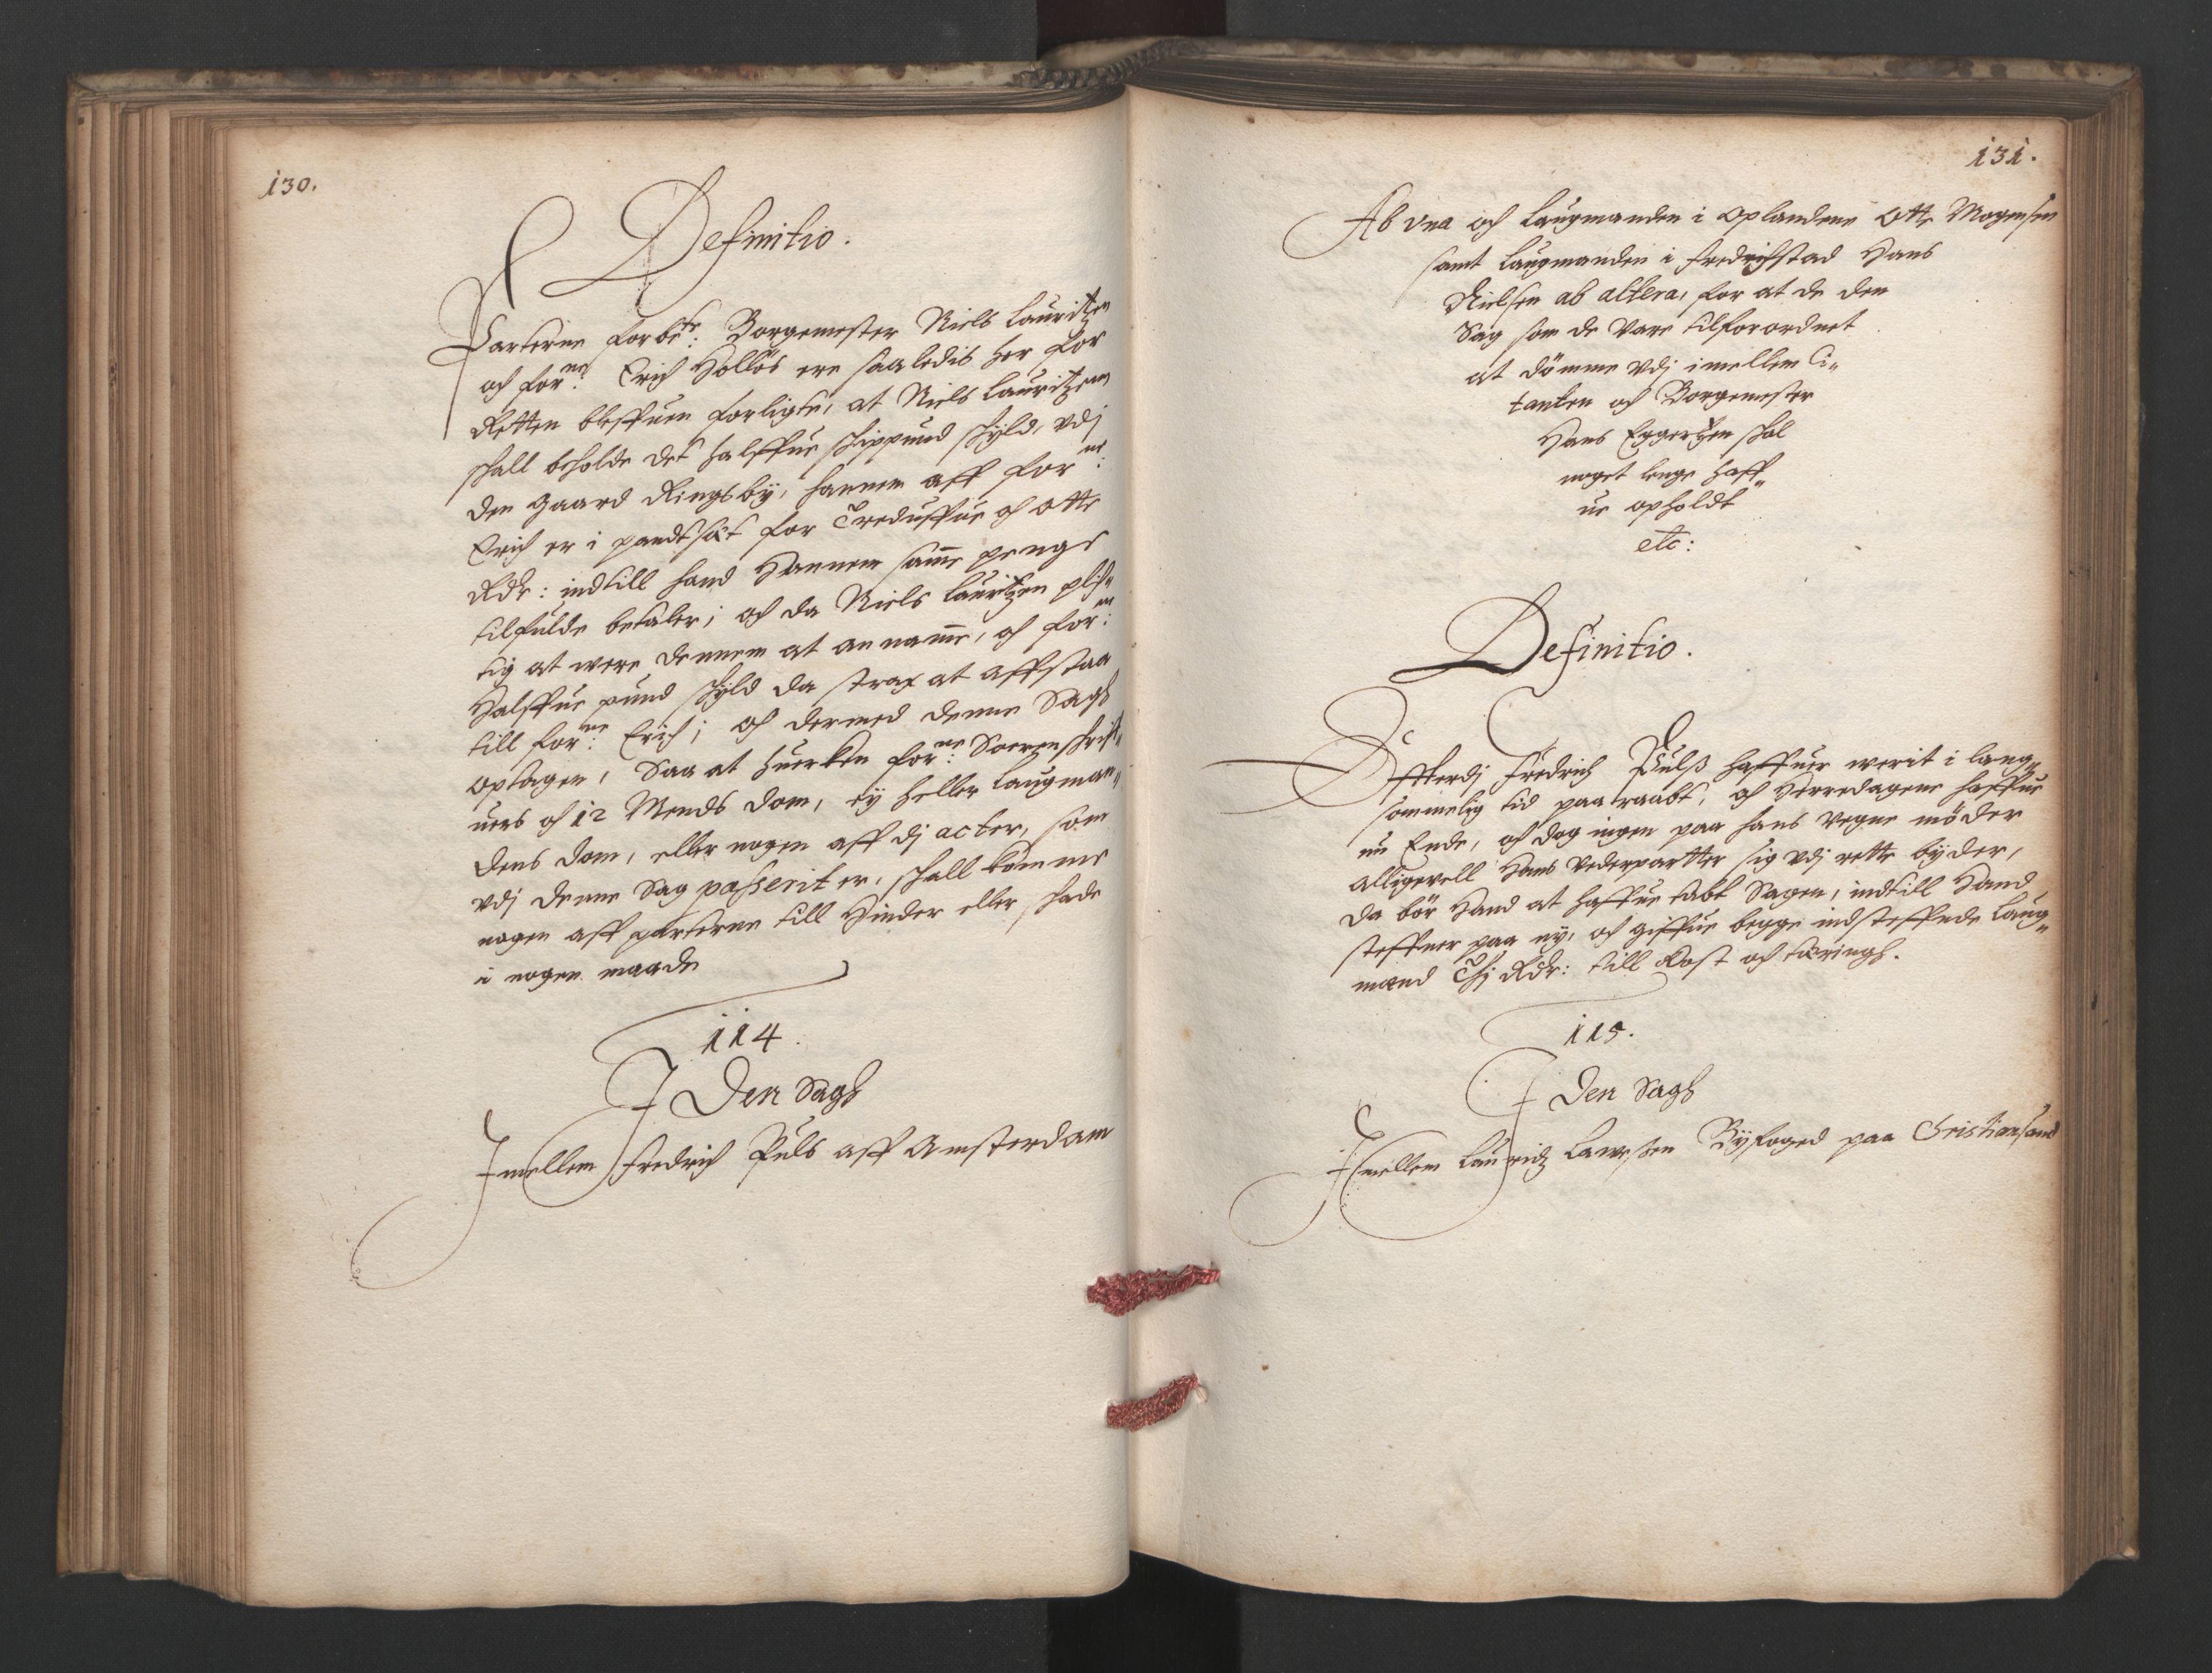 130.
Definitio.
Parterne forbte: Borgemester Niels Lauritzen
och forne: Erich Holløs ere saaledis her for
Retten bleffuen forligte, at Niels Lauritzen
schall beholde det halffue schippund schyld, vdj
den gaard Ringsbÿ, hannem aff forne:
Erich er i pandtsæt for Tredusffue och otte
Rdr: indtill hand Hannem samme penge
tilfulde betaler; och da Niels Lauritzen plich„
tig at were dennem at anname, och forne:
Halffue pund schyld da strax at affstaa
till forne: Erich; och dermed denne Sagh
optagen, Saa at huercken forne: Sorenschrif„
uers och 12 Mends dom, eÿ heller Laugman„
dens dom, eller nogen aff dj acter, som
vdj denne Sag passerit er, schall komme
nogen aff parterne till Hinder eller schade
i nogen maade
114.
J Den Sagh
Jmellem Fredrich Puls aff Amsterdam
131.
Ab vna och Laugmanden i Oplandene Otte Mogensen
samt Laugmanden i Fredrichstad Hans
Nielsen ab altera, for at de den
Sag som de vare tilforordnet
at dømme vdj imellem Ci„
tanten och Borgemester
Hans Eggertzen schal
noget lenge haff„
ue opholdt
etc:
Definitio.
Effterdj Fredrich Pulss haffuer werit i lang„
sommelig tid paaraabt, och Herredagene haffue
nu Ende, och dog ingen paa hans vegne møder
alligevell Hans Vederpartter sig vdj rette bÿder,
da bør Hand at haffue tabt Sagen, indtill Hand
steffner paa nÿ, och giffue begge indsteffnede Laug„
mænd Thj Rdr: till Kost och tæringh.
115.
J Den Sagh
Jmellem Lauridz Lawessen Bÿfoged paa Christiansand